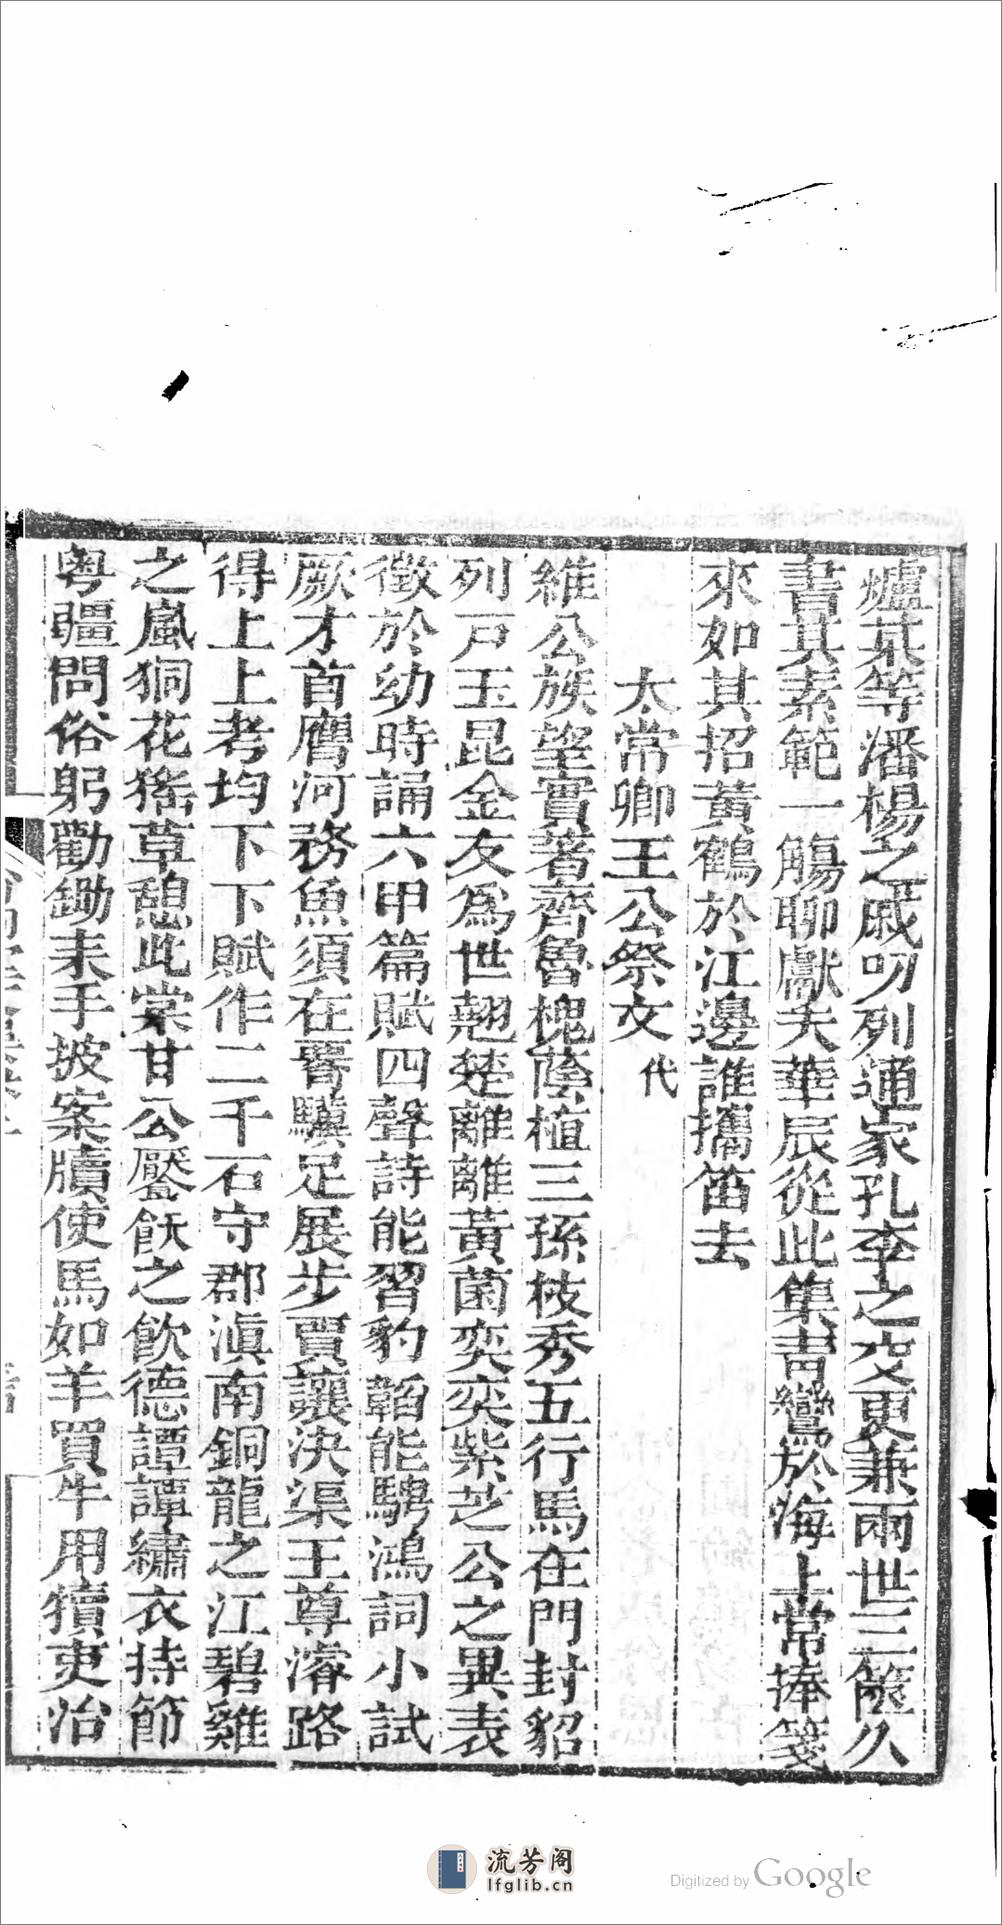 爐某等潘楊之戚叨列通家孔李之交更兼兩世三篋久
書其素範一觴聊獻夫華辰從此集青鸞於海上常捧箋
來如其招黃鶴於江邊誰攜笛去
太常卿王公祭文代
維公族望實著齊魯槐蔭植三孫枝秀五行馬在門封貂
列戸玉昆金友為世翹楚離離黃菌奕奕紫芝公之異表
徵於幼時誦六甲篇賦四聲詩能習豹韜能騁鴻詞小試
厥才首膺河務魚須在搢驥足展步賈讓決渠王尊濬路
得上上考均下下賦作二千石守郡滇南銅龍之江碧雞
之嵐狪花猺草憩此棠甘公饜飫之飲德譚譚繡衣持節
粤疆問俗躬勸鋤耒手披案牘使馬如羊買牛用犢吏治
流芳阁
lfglib.cn
Digitized by Google